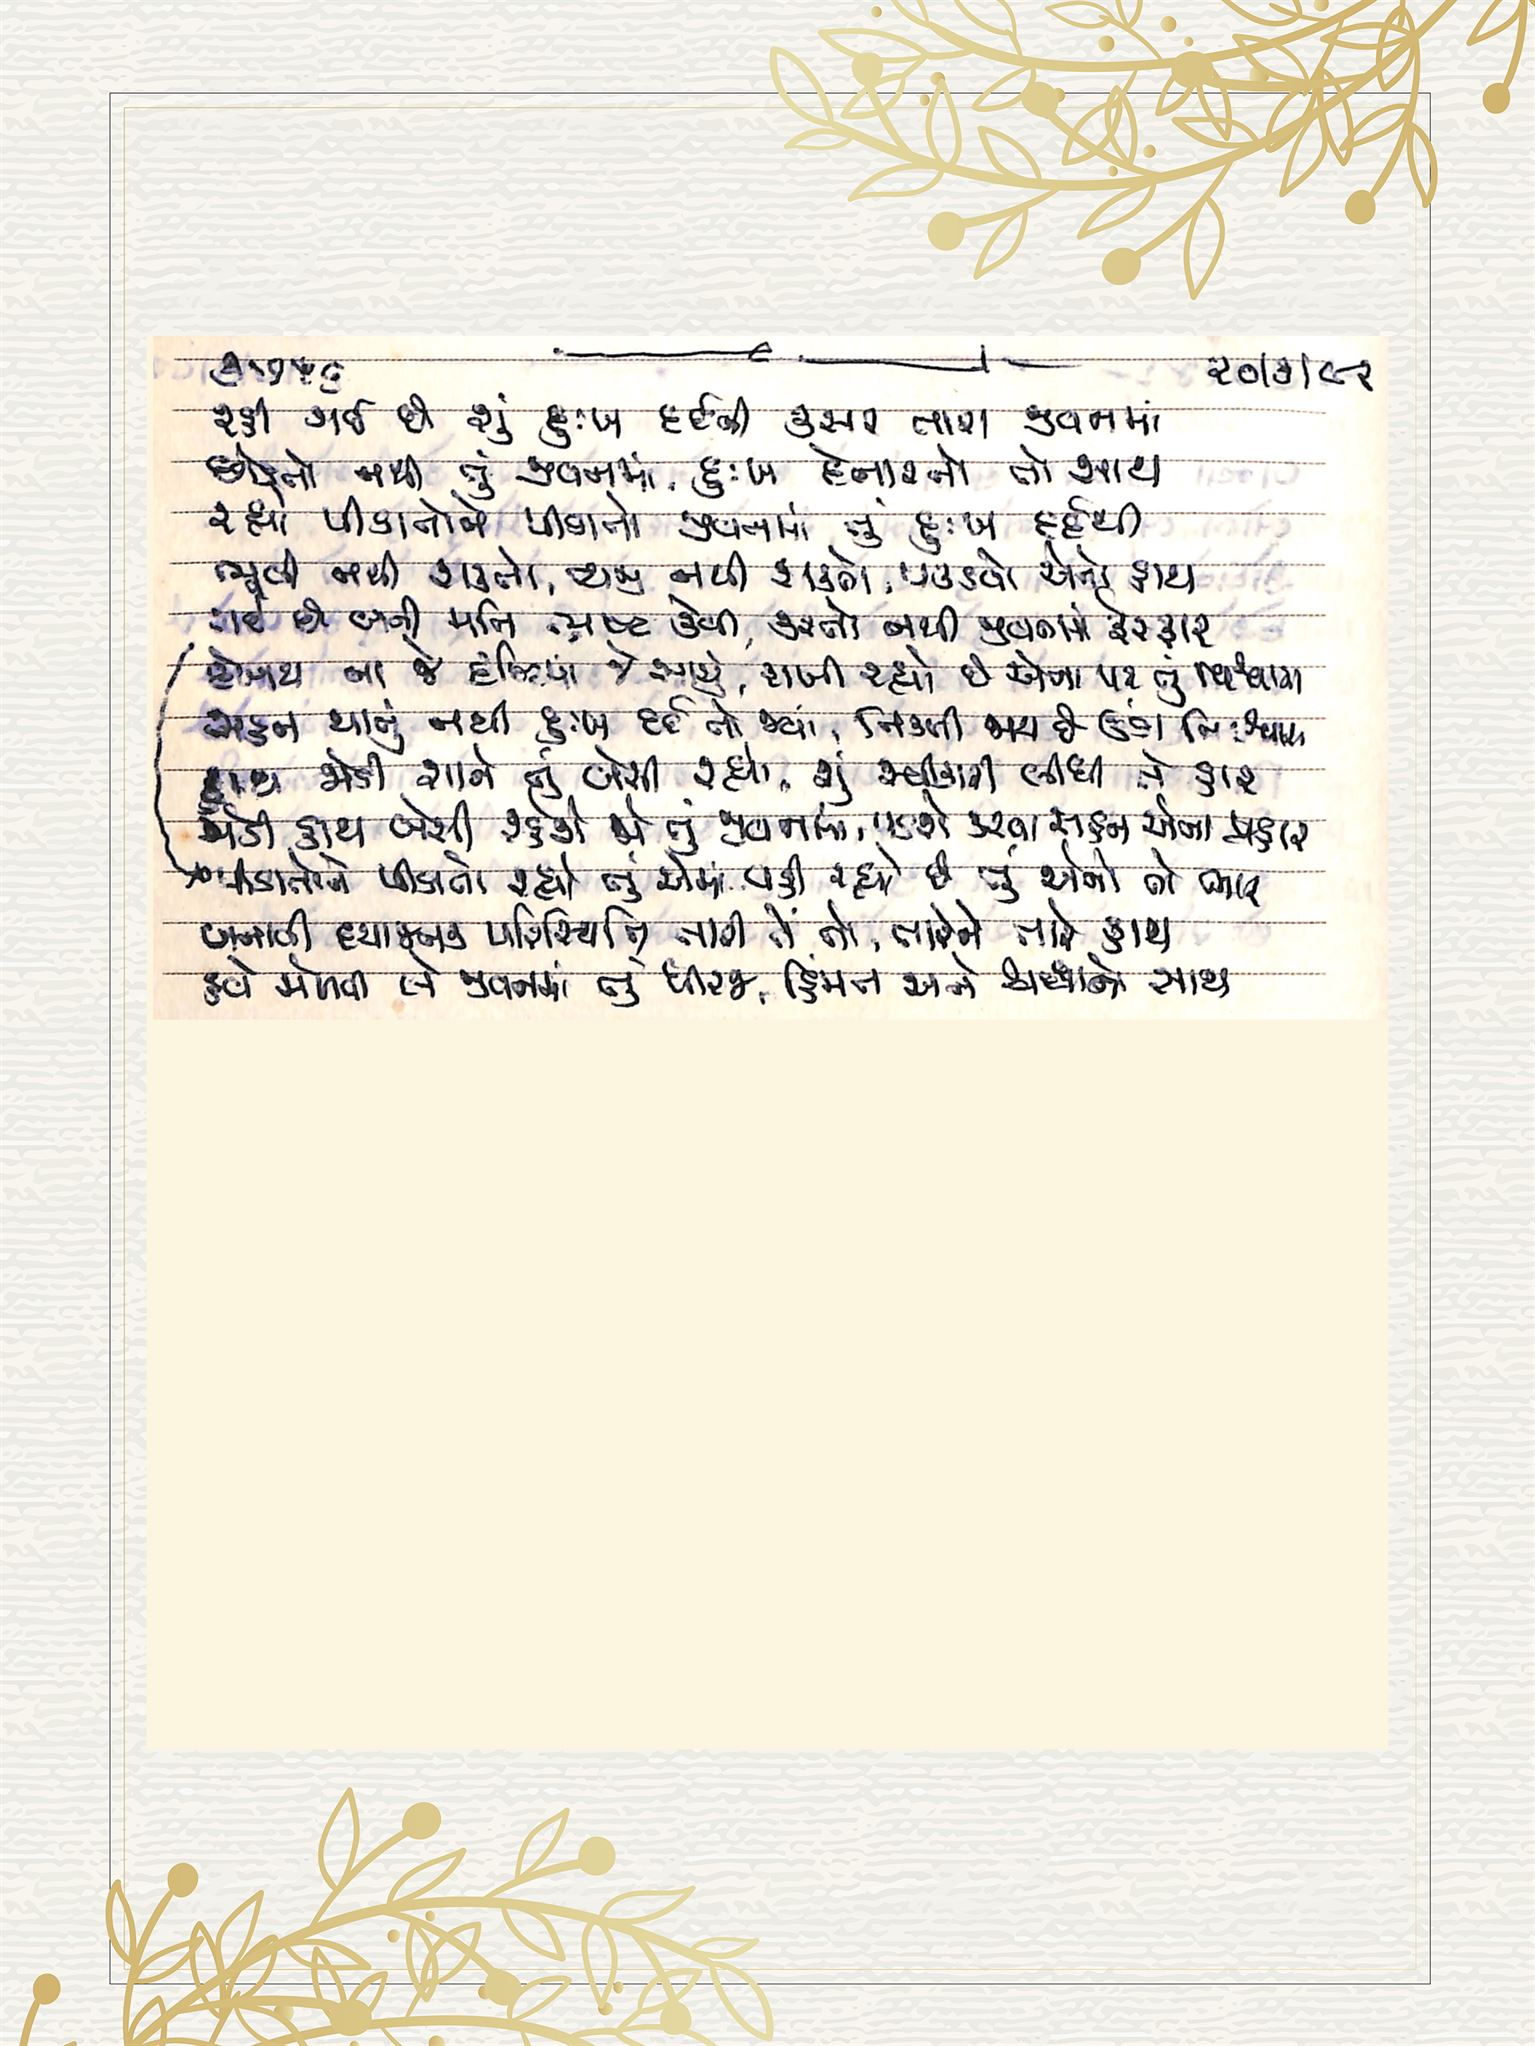 ૨૦/૭/૯૨
રહી ગઈ છે શું દુઃખ દર્દની કસર તારા જીવનમાં
છોડતો નથી તું જીવનમાં, દુઃખ દેનારનો તો સાથ
રહ્યો પીડાતોને પીડાતો જીવનમાં તું દુઃખ દર્દથી
ભૂલી નથી શકતો, ત્યજી નથી શકતો, પકડવો એનો હાથ
ગઈ છે બની મતિ ભ્રષ્ટ કેવી, કરતો નથી જીવનમાં ફેરફાર
ના જે દૃષ્ટિમાં જે આવ્યું, રાખી રહ્યો છે એના પર તું વિશ્વાસ
સહન થાતું નથી દુઃખ દર્દ તો જ્યાં, નિકળી જાય છે ઉંડા નિઃશ્વાસ
હાથ જોડી શાને તું બેસી રહ્યો, શું સ્વીકારી લીધી તેં હાર
જોડી હાથ બેસી રહેશે જો તું જીવનમાં, પડશે કરવા સહન એના પ્રહાર
પીડાતોને પીડાતો રહ્યો તું એમાં, વહી રહ્યો છે તું એનો તો ભાર
બનાવી દયાજનક પરિસ્થિતિ તારી તેં તો, તારેને તારે હાથ
હવે મેળવી લે જીવનમાં તું ધીરજ, હિંમત અને શ્રધ્ધાનો સાથ